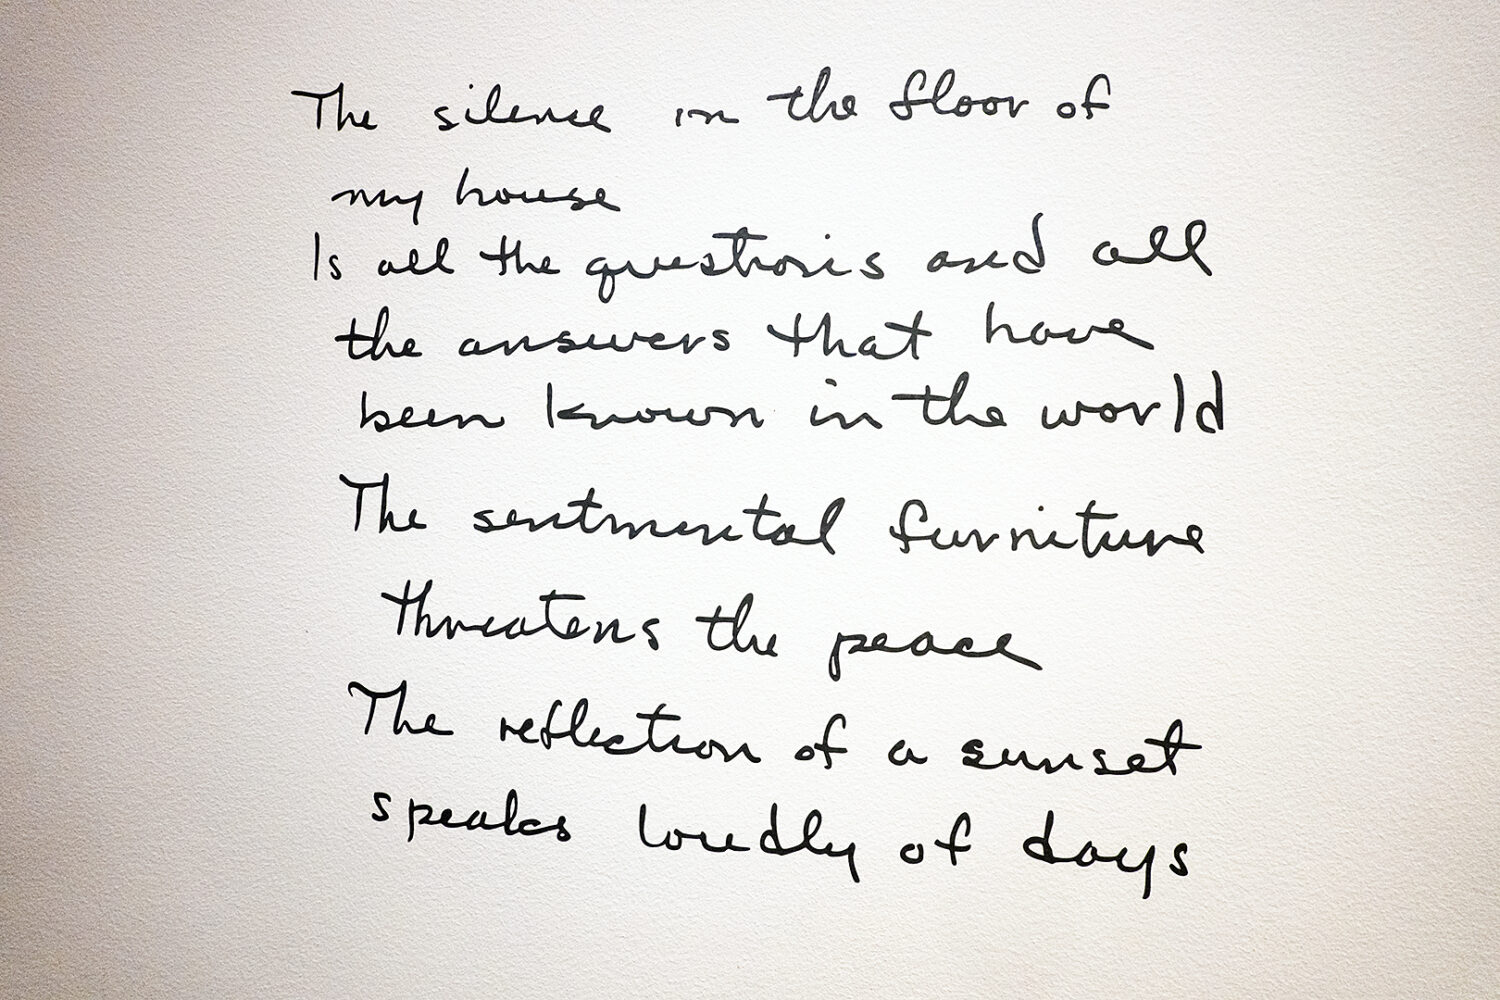 The silence in the floor of
my house
Is all the questions and all
the answers that have
been known in the world
The sentimental furniture
threatens the peace
The reflection of a sunset
speaks loudly of days